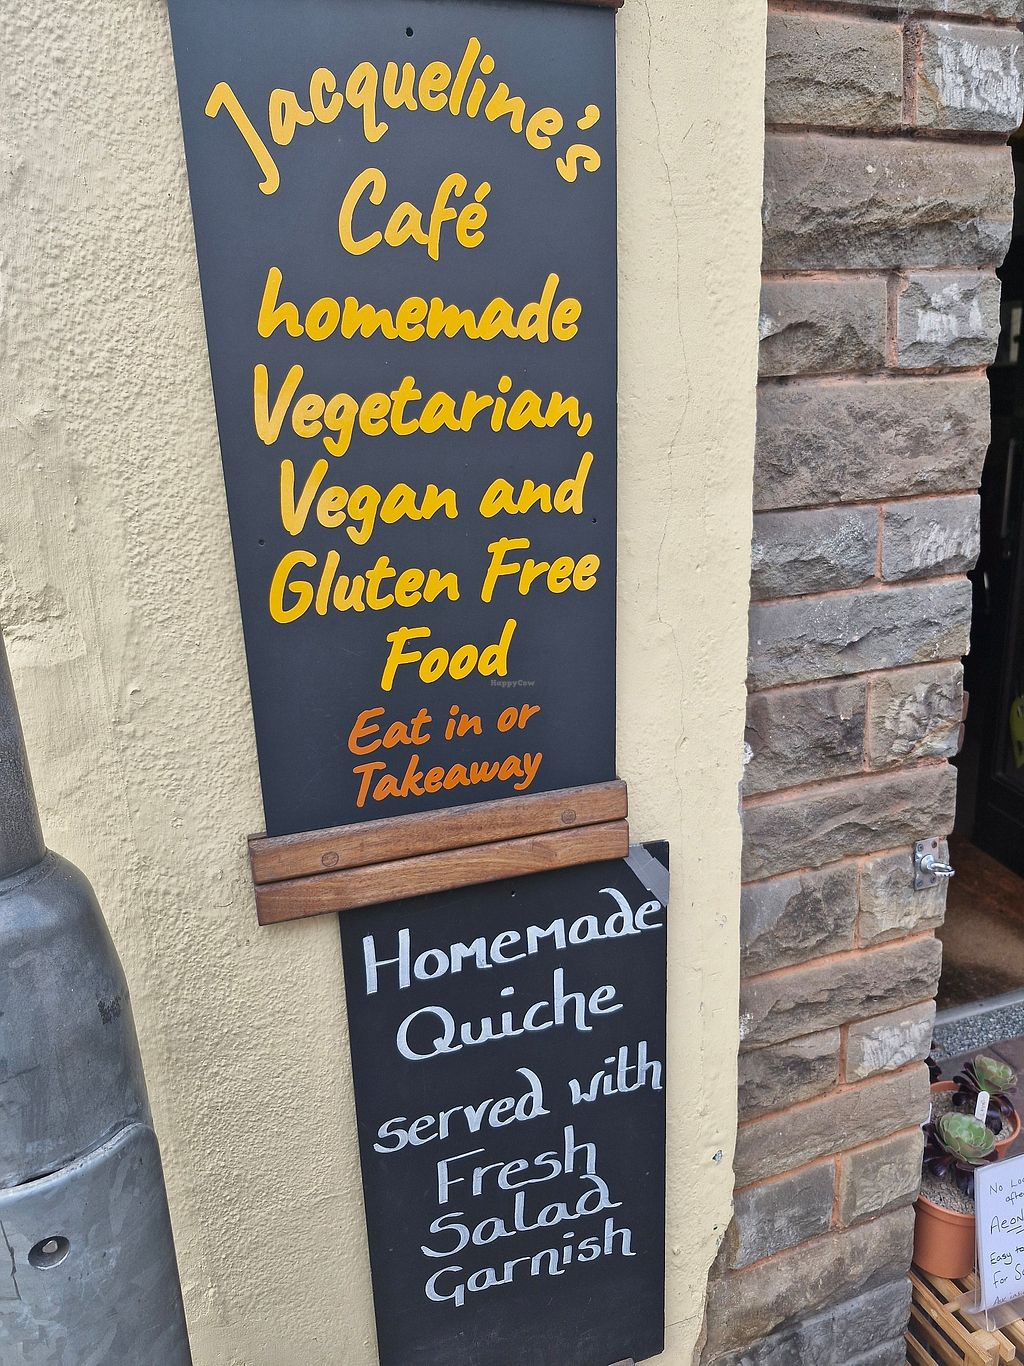 Jacqueline's
Café
homemade
Vegetarian,
Vegan and
Gluten Free
Food
HappyCow
Eat in or
Takeaway
Homemade
Quiche
served with
Fresh
Salad
Garnish
No
Easy
For